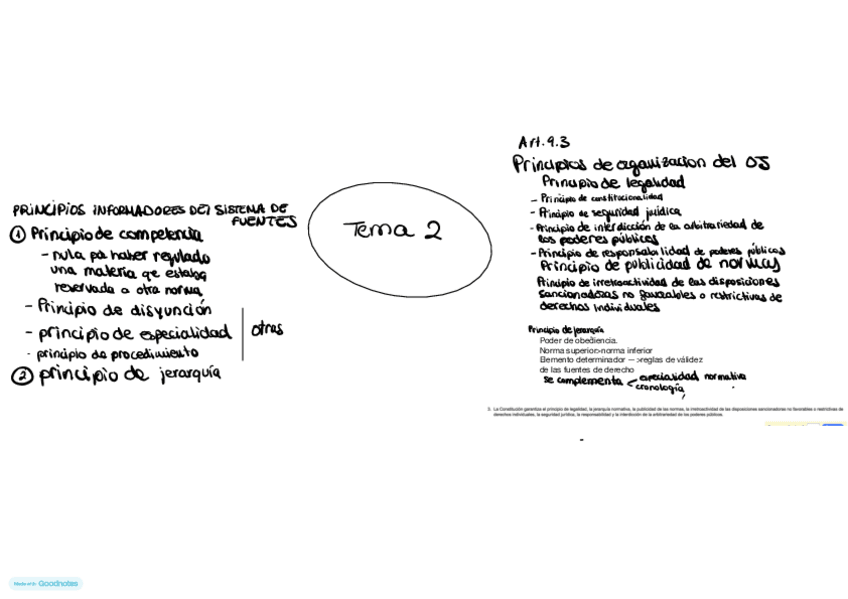 PRINCIPIOS INFORMADORES DEL SISTEMA DE
FUENTES
① Principio de competencia
- nula pa haber regulado
una materia qe estaba
reservada a otra norma
- Principio de disyunción
- principio de especialidad
- principio de procedimiento
otros
② principio de jerarquía
Tema 2
Art.9.3
Principios de organizacion del OJ
Principio de legalidad
- Principio de constitucionalidad
- Principio de seguridad juídica
- Principio de interdicción de la arbitrariedad de
los poderes públicos
- Principio de responsabilidad de poderes públicos
Principio de publicidad de normas
Principio de irretroactividad de las disposiciones
sancionadoras no favorables o restrictivas de
derechos individuales
Principio de jerarquía
Poder de obediencia.
Norma superior>norma inferior
Elemento determinador —>reglas de válidez
de las fuentes de derecho
se complementa < especialidad normativa
cronología
3. La Constitución garantiza el principio de legalidad, la jerarquía normativa, la publicidad de las normas, la irretroactividad de las disposiciones sancionadoras no favorables o restrictivas de
derechos individuales, la seguridad jurídica, la responsabilidad y la interdicción de la arbitrariedad de los poderes públicos.
Made with Goodnotes